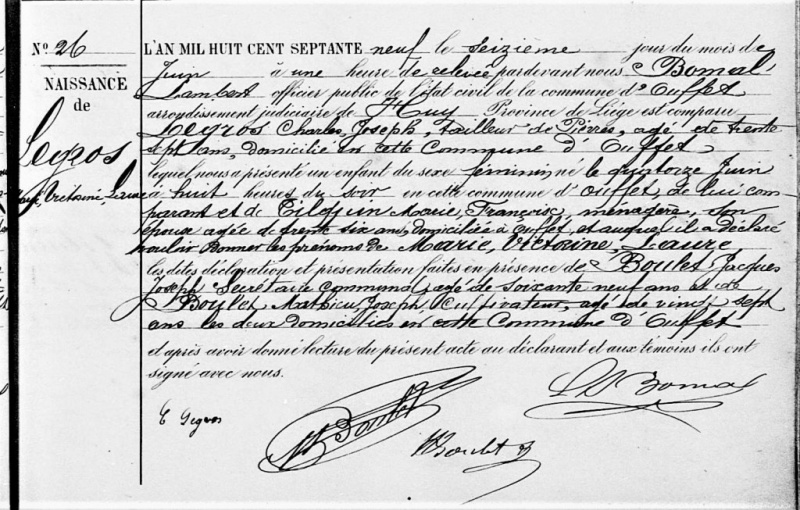 N.º 26
NAISSANCE
de
Legros
Marie, Victoriné, Laure
L'AN MIL HUIT CENT SEPTANTE neuf le seizième jour du mois de
Juin à une heure de relevée pardevant nous Bomal
Lambert officier public de l'état civil de la commune d'Ouffet
arrondissement judiciaire de Huy, Province de Liége est comparu
Legros Charles, Joseph, tailleur de Pierres, agé de trente
sept ans, domicilié en cette Commune d'Ouffet
lequel nous a présenté un enfant du sexe féminin né le quatorze Juin
à huit heures du soir en cette commune d'Ouffet, de lui com
parant et de Tilquin Marie, Françoise, ménagère, son
épouse agée de trente six ans, domiciliée à Ouffet, et auquel il a déclaré
vouloir donner les prénoms de Marie, Victoriné, Laure,
les dites déclaration et présentation faites en présence de Boulet Jacques
Joseph Secrétaire Communal, agé de soixante neuf ans et de
Boulet, Mathieu, Joseph Cultivateur, agé de vingt sept
ans les deux domiciliés en cette Commune d'Ouffet
et d'après avoir donné lecture du présent acte au déclarant et aux témoins ils ont
signé avec nous.
L Bomal
C Legros
Boulet
Boulet